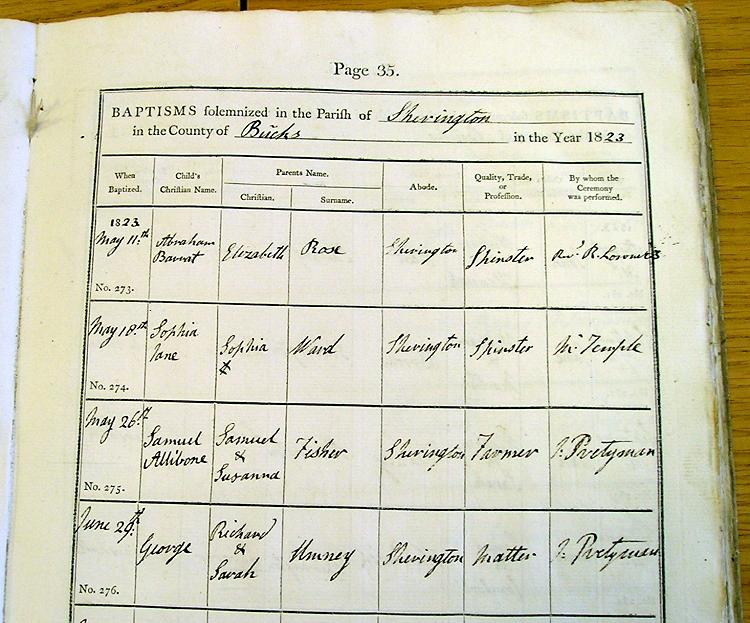 Page 35.
BAPTISMS solemnized in the Parish of Sherington
in the County of Bucks in the Year 1823
When Baptized. Child's Christian Name. Parents Name. Christian. Surname. Abode. Quality, Trade, or Profession. By whom the Ceremony was performed.
1823
May 11th
Abraham
Elizabeth Rose Sherington Spinster Revd R. Lowndes
No. 273.
May 18th Sophia
Jane
Sophia Ward Sherington Spinster Mr Temple
No. 274.
May 26st
Samuel
Allibone
Samuel
&
Susanna
Fisher Sherington Farmer J. Pretyman
No. 275.
June 29th
George
Richard
&
Sarah
Umney Sherington Matter J. Pretyman
No. 276.